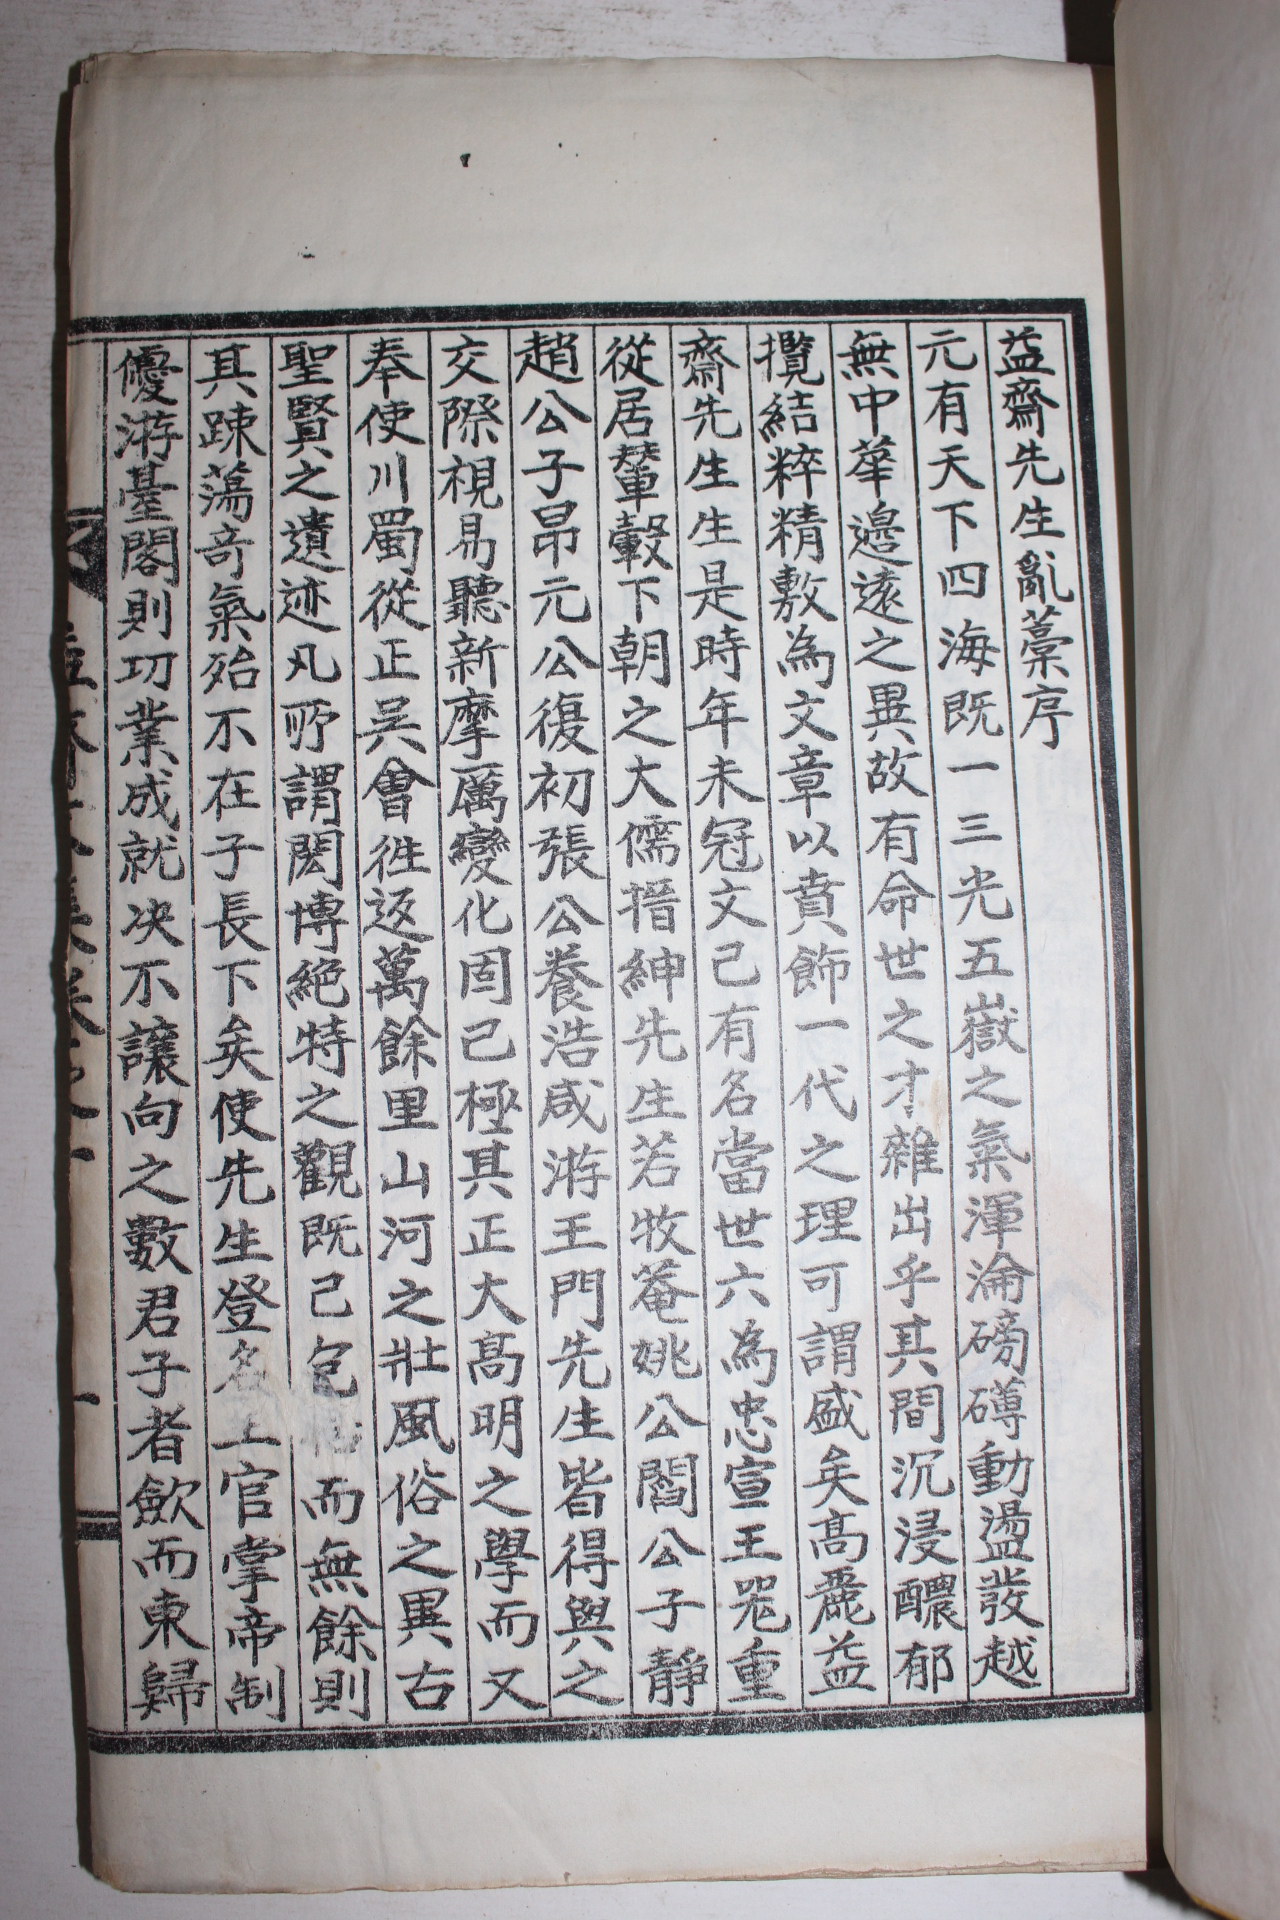 益齋先生亂藁序
元有天下四海既一三光五嶽之氣渾淪磅礴動盪發越
無中華邊遠之異故有命世之才雜出乎其間沉浸醲郁
攬結粹精敷為文章以賁飾一代之理可謂盛矣高麗益
齋先生生是時年未冠文已有名當世六為忠宣王器重
從居輦轂下朝之大儒搢紳先生若牧菴姚公閻公子靜
趙公子昂元公復初張公養浩咸游王門先生皆得與之
交際視易聽新摩厲變化固已極其正大高明之學而又
奉使川蜀從正吳會徃返萬餘里山河之壯風俗之異古
聖賢之遺迹凡所謂閎博絕特之觀既已包括而無餘則
其踈蕩奇氣殆不在子長下矣使先生登名王官掌帝制
優游臺閣則功業成就决不讓向之數君子者歛而東歸